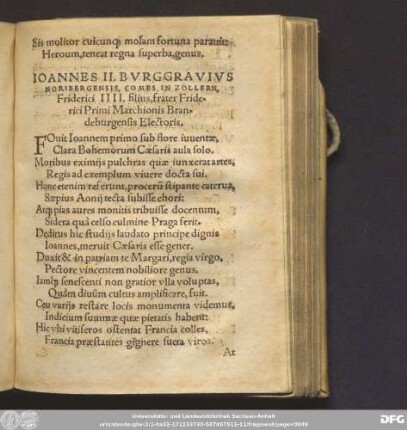 Sis molitor cuicunq; molam fortuna parauit:
Heroum, teneat regna superba, genus.
IOANNES II. BVRGGRAVIVS
NORIBERGENSIS, COMES IN ZOLLERN,
Friderici IIII. filius, frater Fride-
rici Primi Marchionis Bran-
deburgensis Electoris.
FOuit Ioannem primo sub flore iuuentæ,
Clara Bohemorum Cæsaris aula solo.
Moribus eximijs pulchras quæ iunxerat artes,
Regis ad exemplum viuere docta sui.
Hunc etenim referunt, procerū stipante caterua,
Sæpius Aonij tecta subisse chori:
Atq; pias aures monitis tribuisse docentum,
Sidera quà celso culmine Praga ferit.
Deditus hic studijs laudato principe dignis
Ioannes, meruit Cæsaris esse gener.
Duxit & in patriam te Margari, regia virgo,
Pectore vincentem nobiliore genus.
Iamq; senescenti non gratior vlla voluptas,
Quàm diuûm cultus amplificare, fuit.
Ceu varijs restare locis monumenta videmus,
Indicium summæ quæ pietatis habent:
Hic vbi vitiferos ostentat Francia colles,
Francia præstantes gignere sueta viros.
At
Universitäts- und Landesbibliothek Sachsen-Anhalt
DFG